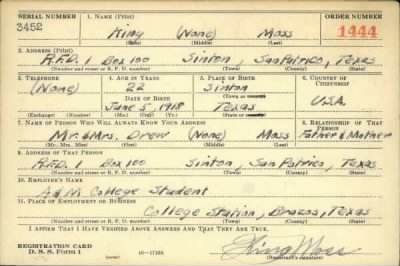 SERIAL NUMBER 1. NAME (Print) ORDER NUMBER
3452 King (None) Moss 1444
(First) (Middle) (Last)
2. ADDRESS (Print)
R.F.D. 1 Box 100 Sinton, San Patricio, Texas
(Number and street or R. F. D. number) (Town) (County) (State)
3. TELEPHONE 4. AGE IN YEARS 5. PLACE OF BIRTH 6. COUNTRY OF CITIZENSHIP
(None) 22 Sinton
DATE OF BIRTH (Town or county)
June 5, 1918 Texas U.S.A.
(Exchange) (Number) (Mo.) (Day) (Yr.) (State or country)
7. NAME OF PERSON WHO WILL ALWAYS KNOW YOUR ADDRESS 8. RELATIONSHIP OF THAT PERSON
Mr. & Mrs. Drew (None) Moss Father & Mother
(Mr., Mrs., Miss) (First) (Middle) (Last)
9. ADDRESS OF THAT PERSON
R.F.D. 1 Box 100 Sinton, San Patricio, Texas
(Number and street or R. F. D. number) (Town) (County) (State)
10. EMPLOYER'S NAME
A & M College Student
11. PLACE OF EMPLOYMENT OR BUSINESS
College Station, Brazos, Texas
(Number and street or R. F. D. number) (Town) (County) (State)
I AFFIRM THAT I HAVE VERIFIED ABOVE ANSWERS AND THAT THEY ARE TRUE.
REGISTRATION CARD
D. S. S. Form 1 (over) King Moss
(Registrant's signature)